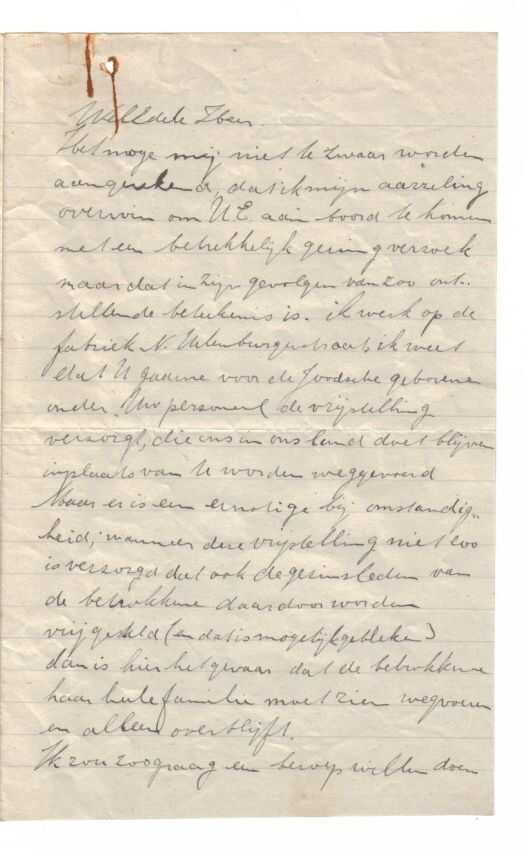 WelEdele Heer.
Het moge mij niet te zwaar worden
aangerekend, dat ik mijn aarzeling
overwin om U.E. aan boord te komen
met een betrekkelijk gering verzoek
maar dat in zijn gevolgen van zoo ont-
stellende beteekenis is. ik werk op de
fabriek N. Uilenburgerstraat, ik weet
dat U gaarne voor de Joodsche geborenen
onder Uw personeel de vrijstelling
verzorgt, die ons in ons land doet blijven
inplaats van te worden weggevoerd
Maar er is een ernstige bij omstandig-
heid; wanneer deze vrijstelling niet zoo
is verzorgd dat ook de gezinsleden van
de betrokkene daardoor worden
vrijgesteld (en dat is mogelijk gebleken)
dan is hier het gevaar dat de betrokkene
haar heele familie moet zien wegvoeren
en alleen overblijft.
Ik zou zoo graag een beroep willen doen